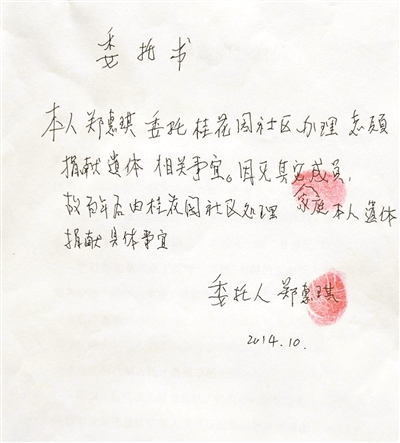 委托书
本人郑惠琪委托桂花园社区办理志愿
捐献遗体相关事宜。因无其它家庭成员,
故百年后由桂花园社区处理本人遗体
捐献具体事宜
委托人郑惠琪
2014.10.